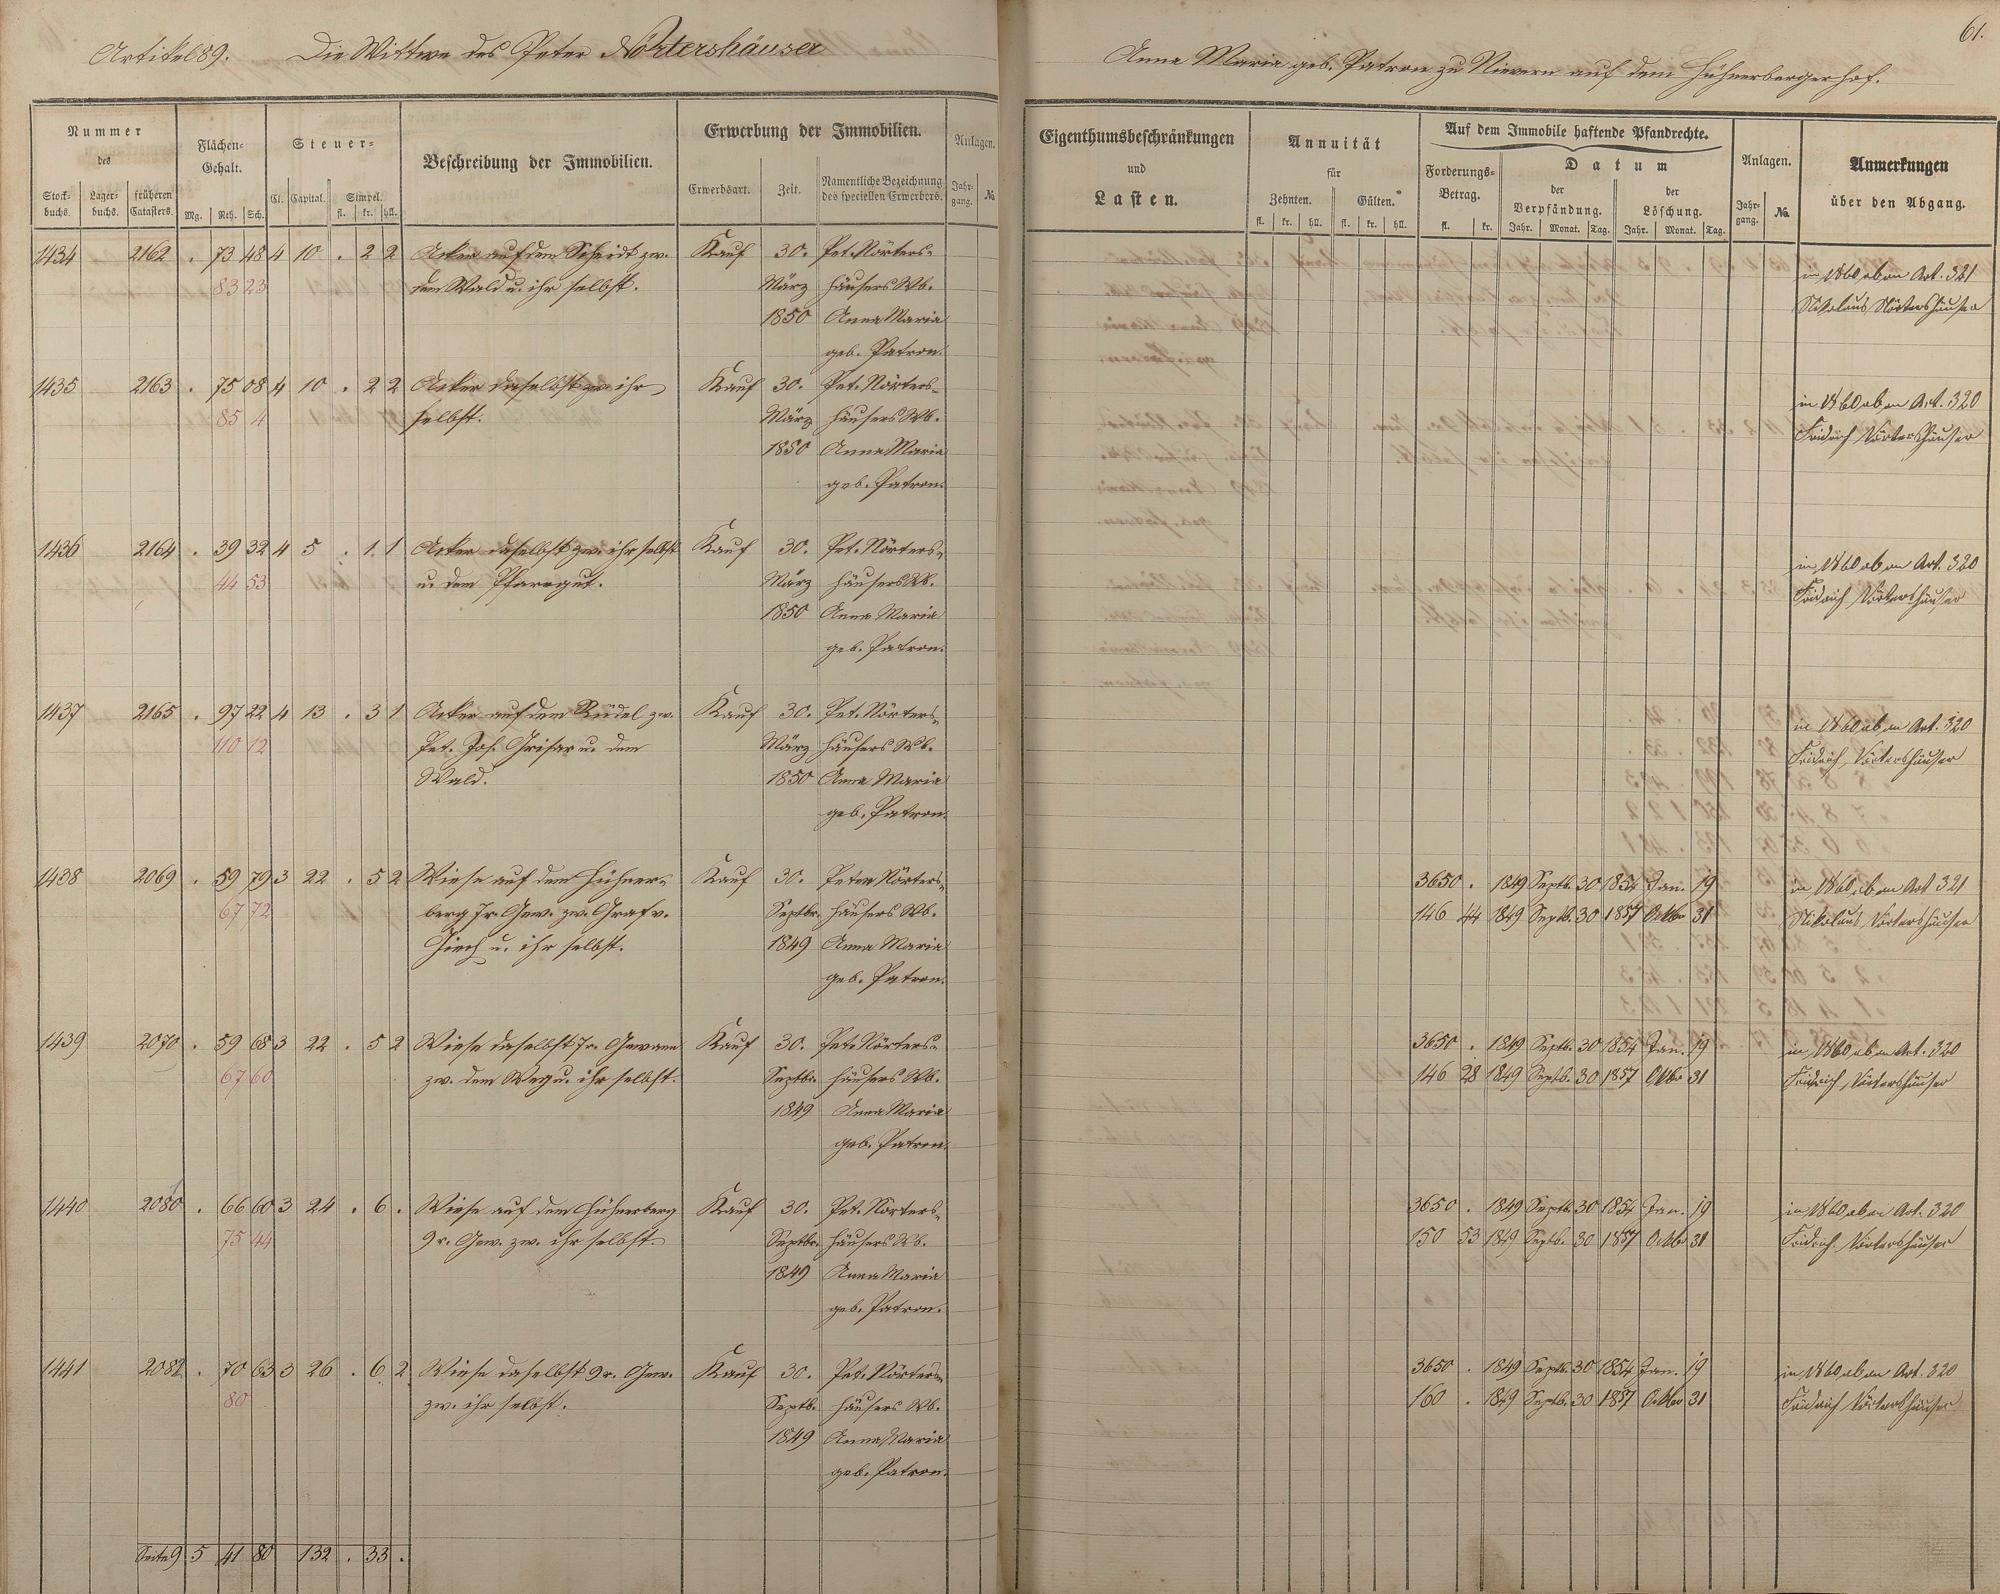 61.
Artikel 89. Die Wittwe des Peter Nörtershäuser
Anna Maria geb. Patron zu Nievern auf dem Hühnerbergerhof.
Nummer
des
Stock-
buchs. Lager-
buchs. früheren
Catasters.
Flächen-
Gehalt.
Mg. Rth. Sch.
Steuer-
Cl. Capital. Simpel.
fl. kr. hll.
Beschreibung der Immobilien.
Erwerbung der Immobilien.
Erwerbsart. Zeit. Namentliche Bezeichnung
des speciellen Erwerbers.
Anlagen.
Jahr-
gang. №
Eigenthumsbeschränkungen
und
Lasten.
Annuität
für
Zehnten. Gülten.
fl. kr. hll. fl. kr. hll.
Auf dem Immobile haftende Pfandrechte.
Forderungs-
Betrag.
fl. kr.
Datum
der
Verpfändung.
Jahr. Monat. Tag.
der
Löschung.
Jahr. Monat. Tag.
Anlagen.
Jahr-
gang. №
Anmerkungen
über den Abgang.
1434 2162 . 73 48 4 10 . 2 2 Acker auf dem Scheidt zw. Kauf 30. Pet. Nörters- in 1860 ab an Art. 321
83 23 dem Wald u. ihr selbst. März häusers Wb. Nikolaus Nörtershäuser
1850 Anna Maria
geb. Patron.
1435 2163 . 75 08 4 10 . 2 2 Acker daselbst zw. ihr Kauf 30. Pet. Nörters- in 1860 ab an Art. 320
85 4 selbst. März häusers Wb. Fridrich Nörtershäuser
1850 Anna Maria
geb. Patron.
1436 2164 . 39 32 4 5 . 1 1 Acker daselbst zw. ihr selbst Kauf 30. Pet. Nörters- in 1860 ab an Art. 320
44 53 u. dem Pfarrgut. März häusers Wb. Fridrich Nörtershäuser
1850 Anna Maria
geb. Patron.
1437 2165 . 97 22 4 13 . 3 1 Acker auf dem Rüdel zw. Kauf 30. Pet. Nörters- in 1860 ab an Art. 320
110 12 Pet. Jos. Grisar u. dem März häusers Wb. Fridrich Nörtershäuser
Wald. 1850 Anna Maria
geb. Patron.
1438 2069 . 59 79 3 22 . 5 2 Wiese auf dem Hühner- Kauf 30. Peter Nörters- 3650 . 1849 Septb. 30 1854 Jan. 19 in 1860 ab an Art 321
67 72 berg 7r. Gew. zw. Graf v. Septbr. häusers Wb. 146 44 1849 Septb. 30 1857 Oktbr 31 Nikolaus Nörtershäuser
Giech u. ihr selbst. 1849 Anna Maria
geb. Patron.
1439 2070 . 59 68 3 22 . 5 2 Wiese daselbst 7r. Gewann Kauf 30. Pet. Nörters- 3650 . 1849 Septb. 30 1854 Jan. 19 in 1860 ab an Art. 320
67 60 zw. dem Weg u. ihr selbst. Septbr. häusers Wb. 146 28 1849 Septb. 30 1857 Oktbr 31 Fridrich Nörtershäuser
1849 Anna Maria
geb. Patron.
1440 2080 . 66 60 3 24 . 6 . Wiese auf dem Hühnerberg Kauf 30. Pet. Nörters- 3650 . 1849 Septb. 30 1854 Jan. 19 in 1860 ab an Art. 320
75 44 9r. Gew. zw. ihr selbst. Septbr. häusers Wb. 150 53 1849 Septb. 30 1857 Oktbr 31 Fridrich Nörtershäuser
1849 Anna Maria
geb. Patron.
1441 2082 . 70 63 3 26 . 6 2 Wiese daselbst 9r. Gew. Kauf 30. Pet. Nörters- 3650 . 1849 Septb. 30 1854 Jan. 19 in 1860 ab an Art. 320
80 zw. ihr selbst. Septb. häusers Wb. 160 . 1849 Septb. 30 1857 Oktbr 31 Fridrich Nörtershäuser
1849 Anna Maria
geb. Patron.
Seite 9 5 41 80 132 . 33 .